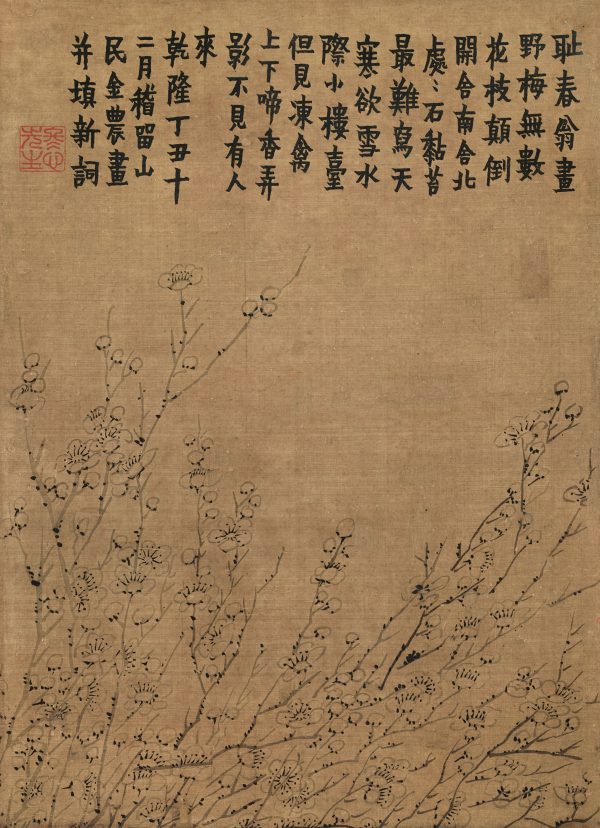 耻春翁畫
野梅無數
花枝顛倒
開舍南舍北
處〻石黏苔
最難寫天
寒欲雪水
際小樓臺
但見凍禽
上下啼香弄
影不見有人
來
乾隆丁丑十
二月稽留山
民金農畫
并填新詞
冬心先生